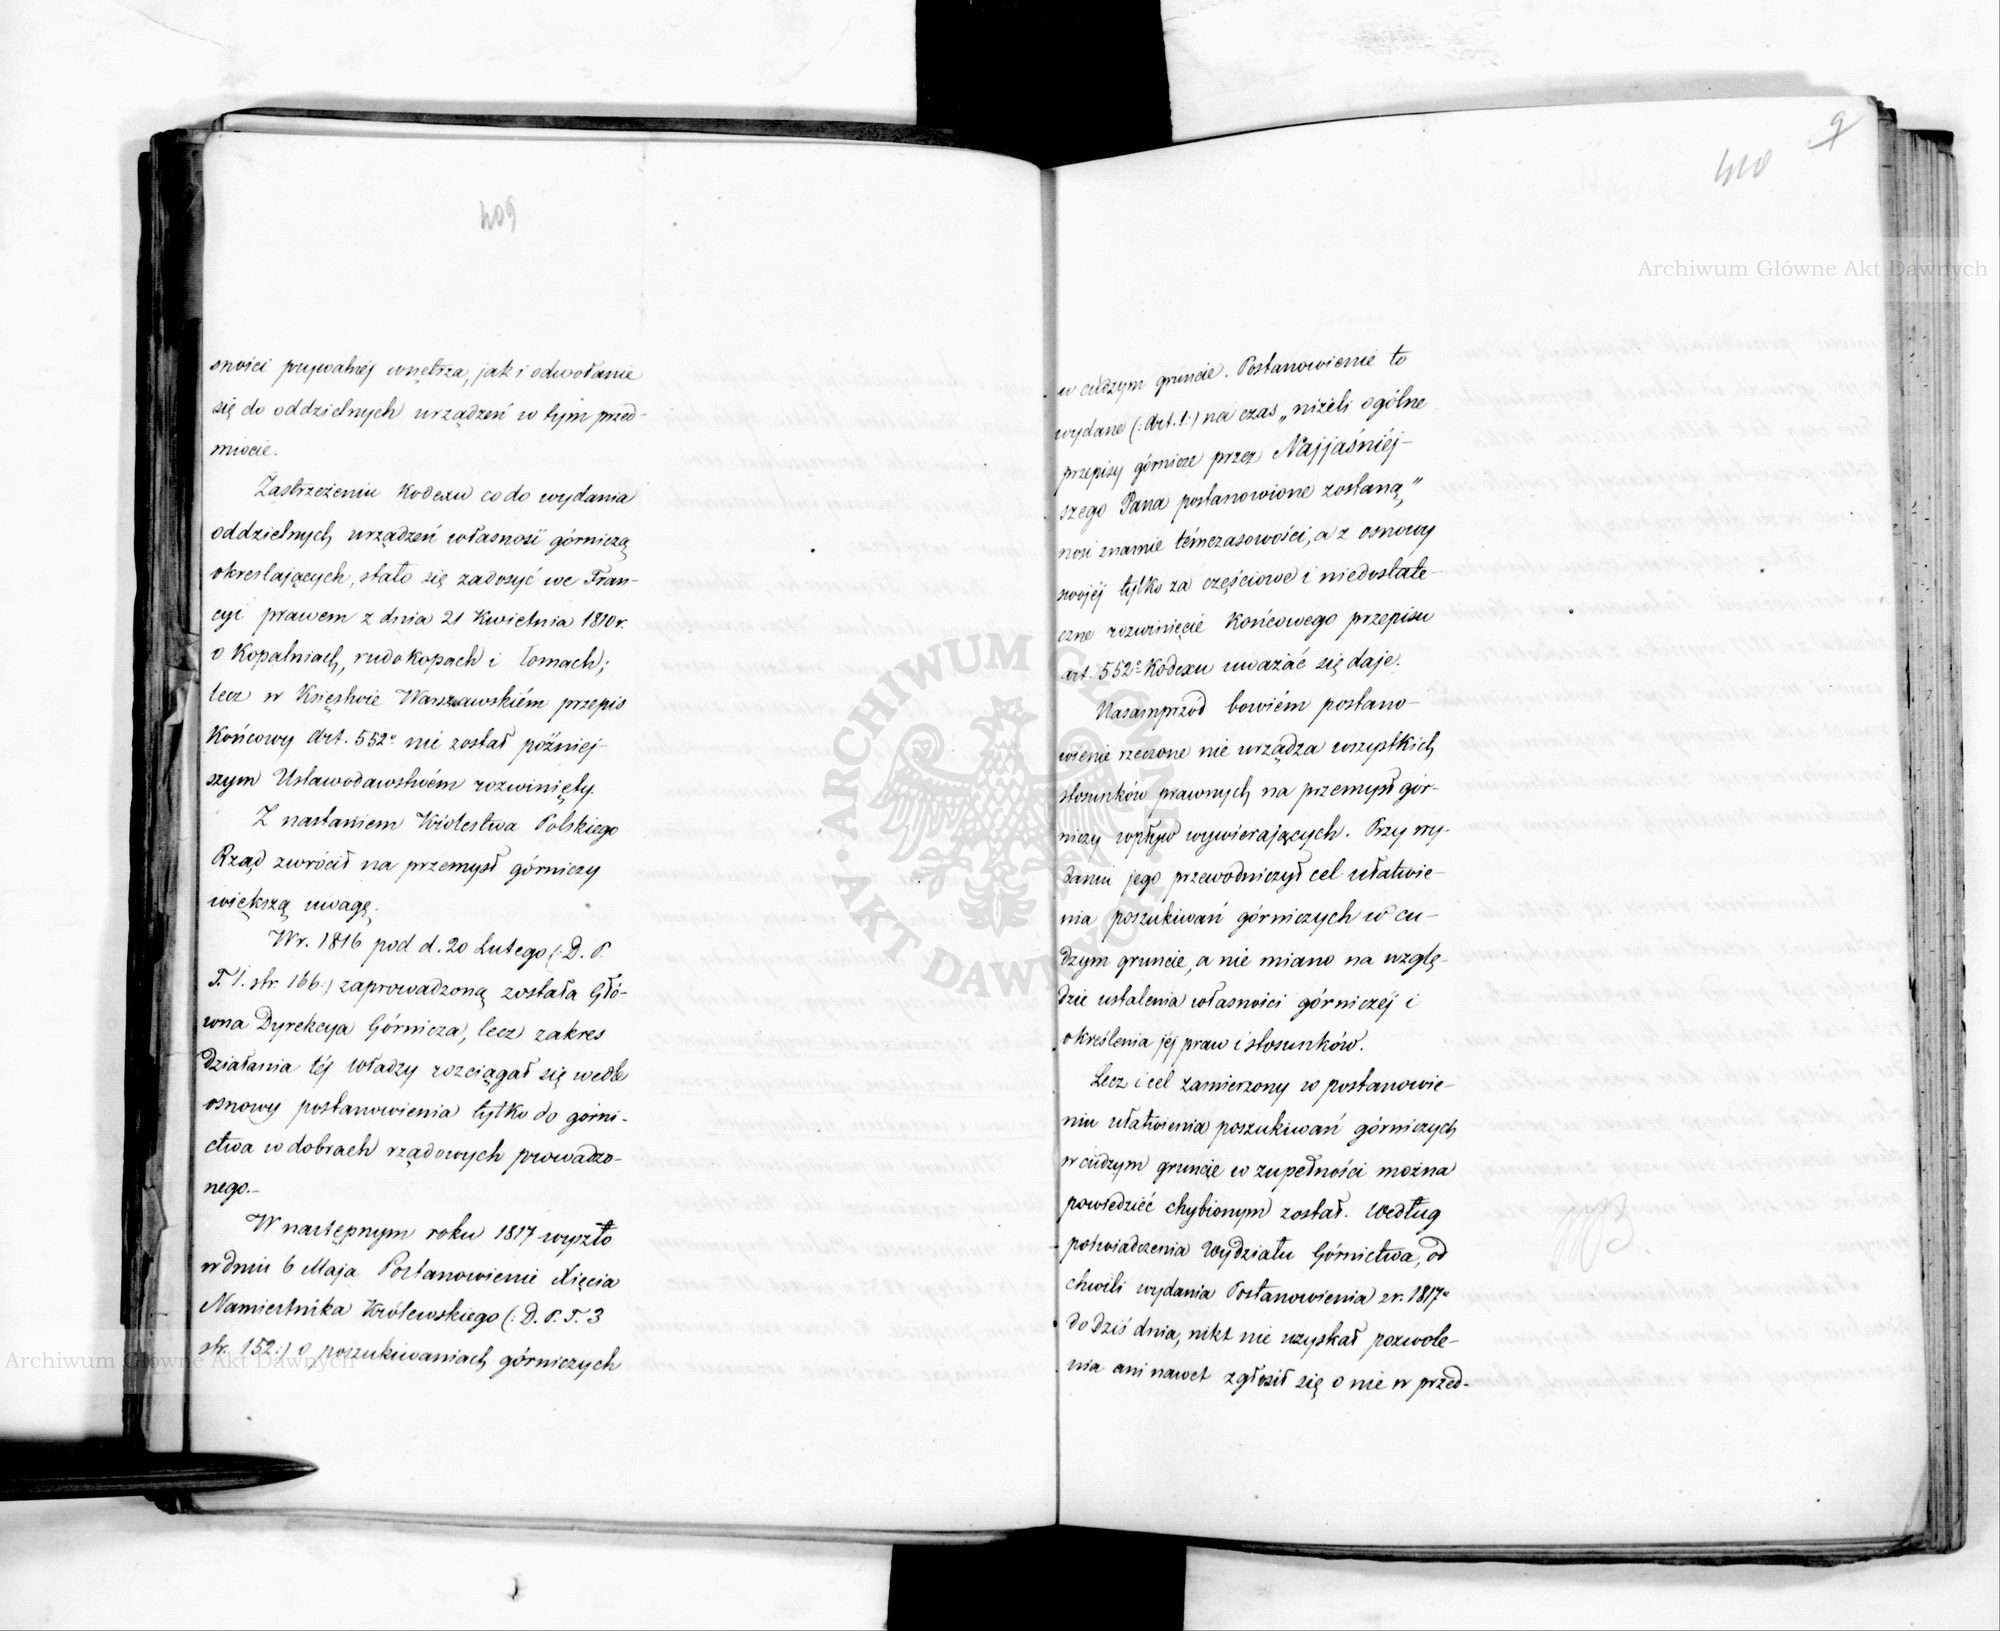 409
sności prywatnéj wnętrza, jak i odwołanie
się do oddzielnych urządzeń w tym przed-
miocie.
Zastrzeżeniu Kodexu co do wydania
oddzielnych urządzeń własność górniczą
określających, stało się zadosyć we Fran-
cyi prawem z dnia 21 Kwietnia 1810 r.
o Kopalniach, rudokopach i łomach;
lecz w Księstwie Warszawskiém przepis
Końcowy Art. 552º nie został poźniej-
szym Ustawodawstwém rozwinięty.
Z nastaniem Królestwa Polskiego
Rząd zwrócił na przemysł górniczy
większą uwagę.
W r. 1816 pod d. 20 Lutego (: D. P.
T. 1. str. 166:) zaprowadzoną została Głó-
wna Dyrekcya Górnicza, lecz zakres
działania téj Władzy rozciągał się wedle
osnowy postanowienia tylko do górni-
ctwa w dobrach rządowych prowadzo-
nego.-
W następnym roku 1817 wyszło
w dniu 6 Maja Postanowienie Xięcia
Namiestnika Królewskiego (: D. P. T. 3
str. 152:) o poszukiwaniach górniczych
9
410
w cudzym gruncie. Postanowienie to
wydane (: Art. 1:) na czas „niżeli ogólne
przepisy górnicze przez Najjaśniéj-
szego Pana postanowione zostaną,"
nosi znamie témczasowości, a z osnowy
swojéj tylko za częściowe i niedostate-
czne rozwinięcie Końcowego przepisu
art. 552º Kodexu uważać się daje.
Nasamprzod bowiém postano-
wienie rzeczone nie urządza wszystkich
stosunków prawnych na przemysł gór-
niczy wpływ wywierających. Przy wy-
daniu jego przewodniczył cel ułatwie-
nia poszukiwań górniczych w cu-
dzym gruncie, a nie miano na wzglę-
dzie ustalenia własności górniczéj i
określenia jéj praw i stosunków.
Lecz i cel zamierzony w postanowie-
niu ułatwienia poszukiwań górniczych
w cudzym gruncie w zupełności można
powiedzieć chybionym został. Według
poświadczenia Wydziału Górnictwa, od
chwili wydania Postanowienia z r. 1817º
do dziś dnia, nikt nie uzyskał pozwole-
nia ani nawet zgłosił się o nie w przed-
ARCHIWUM GŁÓWNE
AKT DAWNYCH
Archiwum Główne Akt Dawnych
Archiwum Główne Akt Dawnych